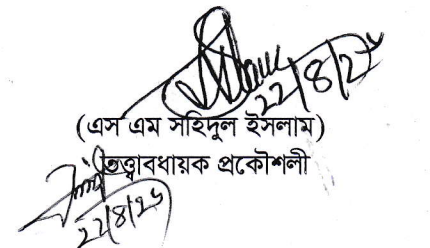 22/8/25
(এস এম সহিদুল ইসলাম)
তত্ত্বাবধায়ক প্রকৌশলী
22/8/25